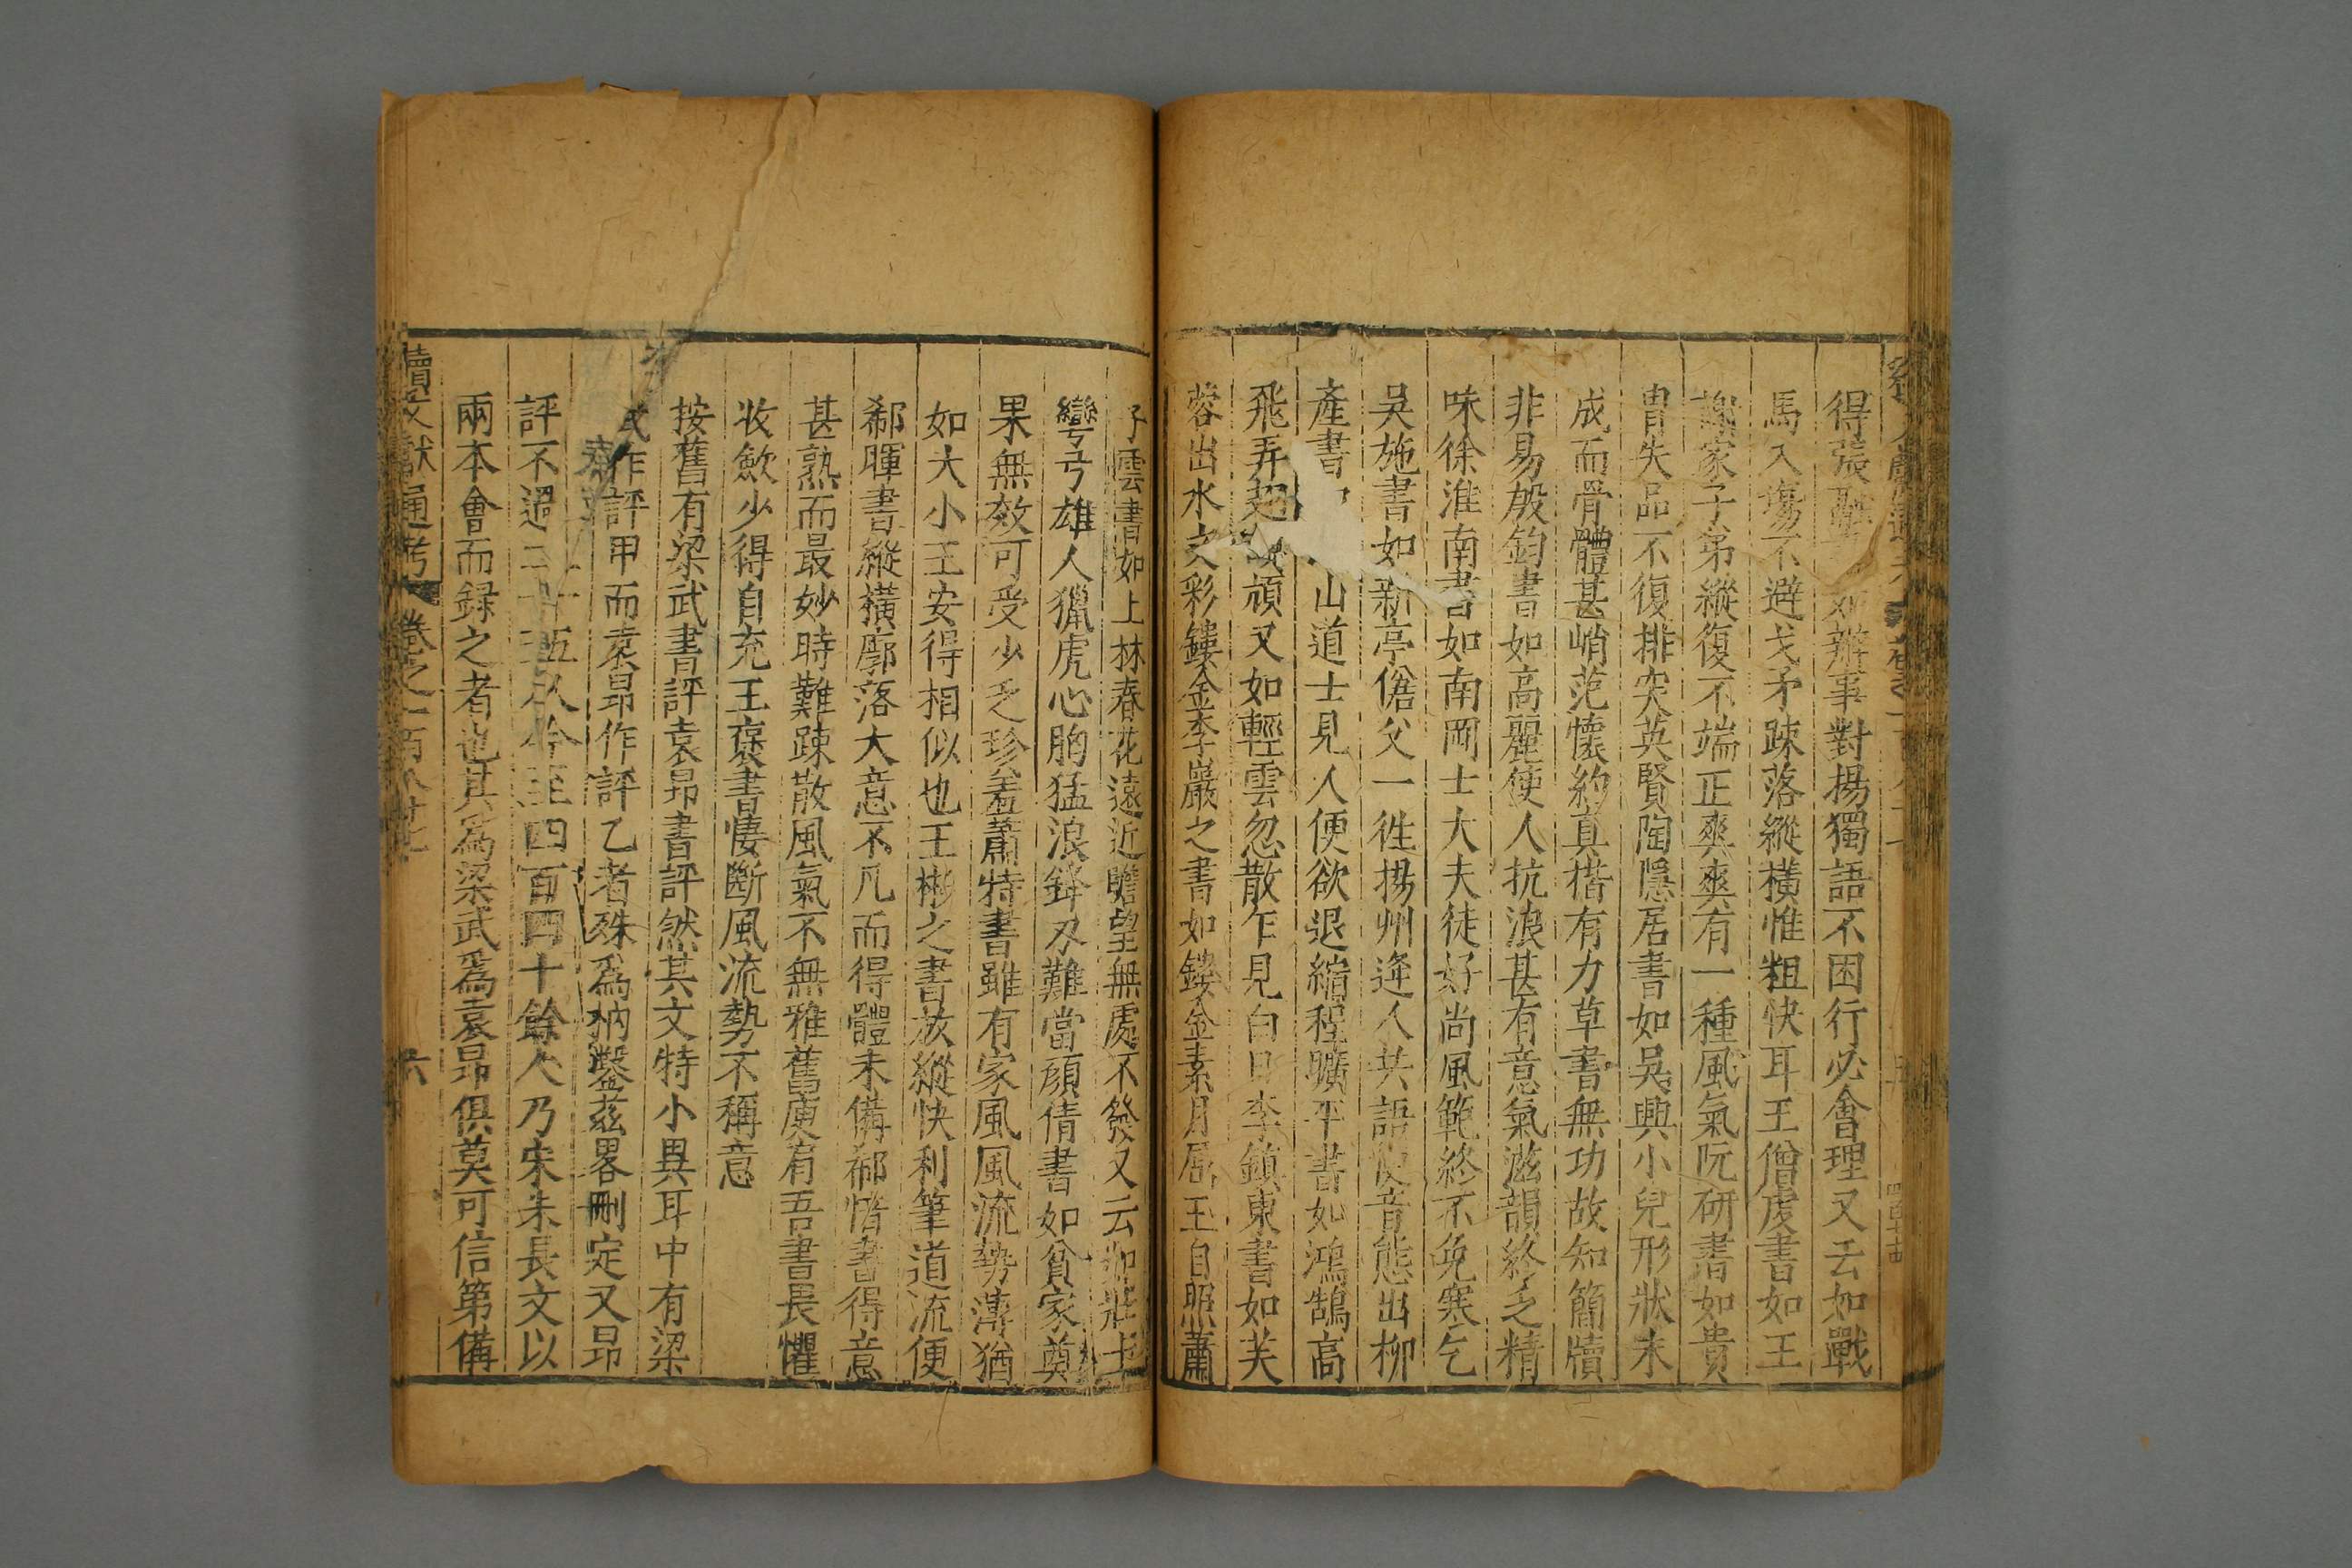 得張融書如辯事對揚獨語不困行必會理又云如戰
馬入塲不避戈矛踈落縱橫惟粗快耳王僧虔書如王
謝家子弟縱復不端正爽爽有一種風氣阮研書如貴
胄失品不復排突英賢陶隱居書如吳興小兒形狀未
成而骨體甚峭范懷約真楷有力草書無功故知簡牘
非易殷鈞書如高麗使人抗浪甚有意氣滋韻終乏精
味徐淮南書如南岡士大夫徒好尚風範終不免寒乞
吳施書如新亭傖父一徃揚州逄人共語便音態出柳
產書山道士見人便欲退縮程曠平書如鴻鵠高
飛弄翅頏又如輕雲忽散乍見白日李鎮東書如芙
蓉出水文彩鏤金李巖之書如鏤金素月屈玉自照蕭
子雲書如上林春花遠近瞻望無處不發又云如壯士
彎弓雄人獵虎心胸猛浪鋒刃難當顏倩書如貧家奠
果無效可受少乏珍羞蕭特書雖有家風風流勢薄猶
如大小王安得相似也王彬之書放縱快利筆道流便
郗暉書縱橫廓落大意不凡而得體未備郗愔書得意
甚熟而最妙時難踈散風氣不無雅舊庾肩吾書長懼
收斂少得自充王褒書悽斷風流勢不稱意
按舊有梁武書評袁昂書評然其文特小異耳中有梁
武作評甲而袁昂作評乙者殊爲枘鑿茲畧刪定又昂
評不過二十五人今至四百四十餘人乃宋朱長文以
兩本會而録之者也其爲梁武爲袁昂俱莫可信第備
續文獻通考 卷之一百八十七 六